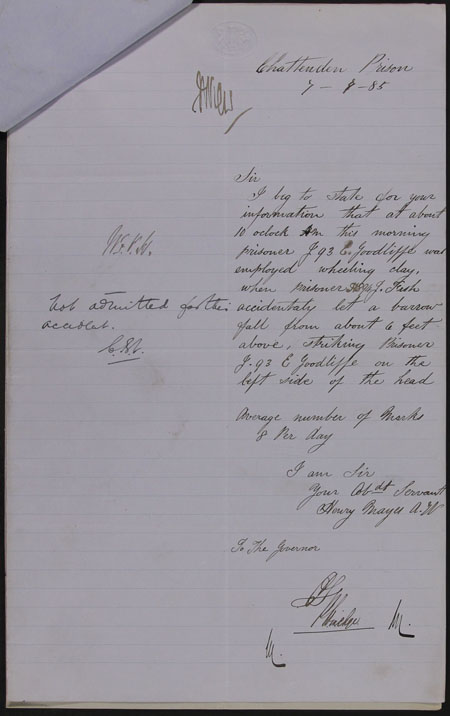 Chattenden Prison
7 - 7 - 85
Sir
I beg to state for your
information that at about
10 oclock Am this morning
prisoner J 93 E. Goodliffe was
employed wheeling clay,
when prisoner J. Fish
accidentaly let a barrow
fall from about 6 feet
above, striking Prisoner
J. 93 E Goodliffe on the
left side of the head
Average number of Marks
8 Per day
I am Sir
Your Obdt Servant
Henry Mayes A.W
To The Governor
M.
M.
Not admitted for this
accident.